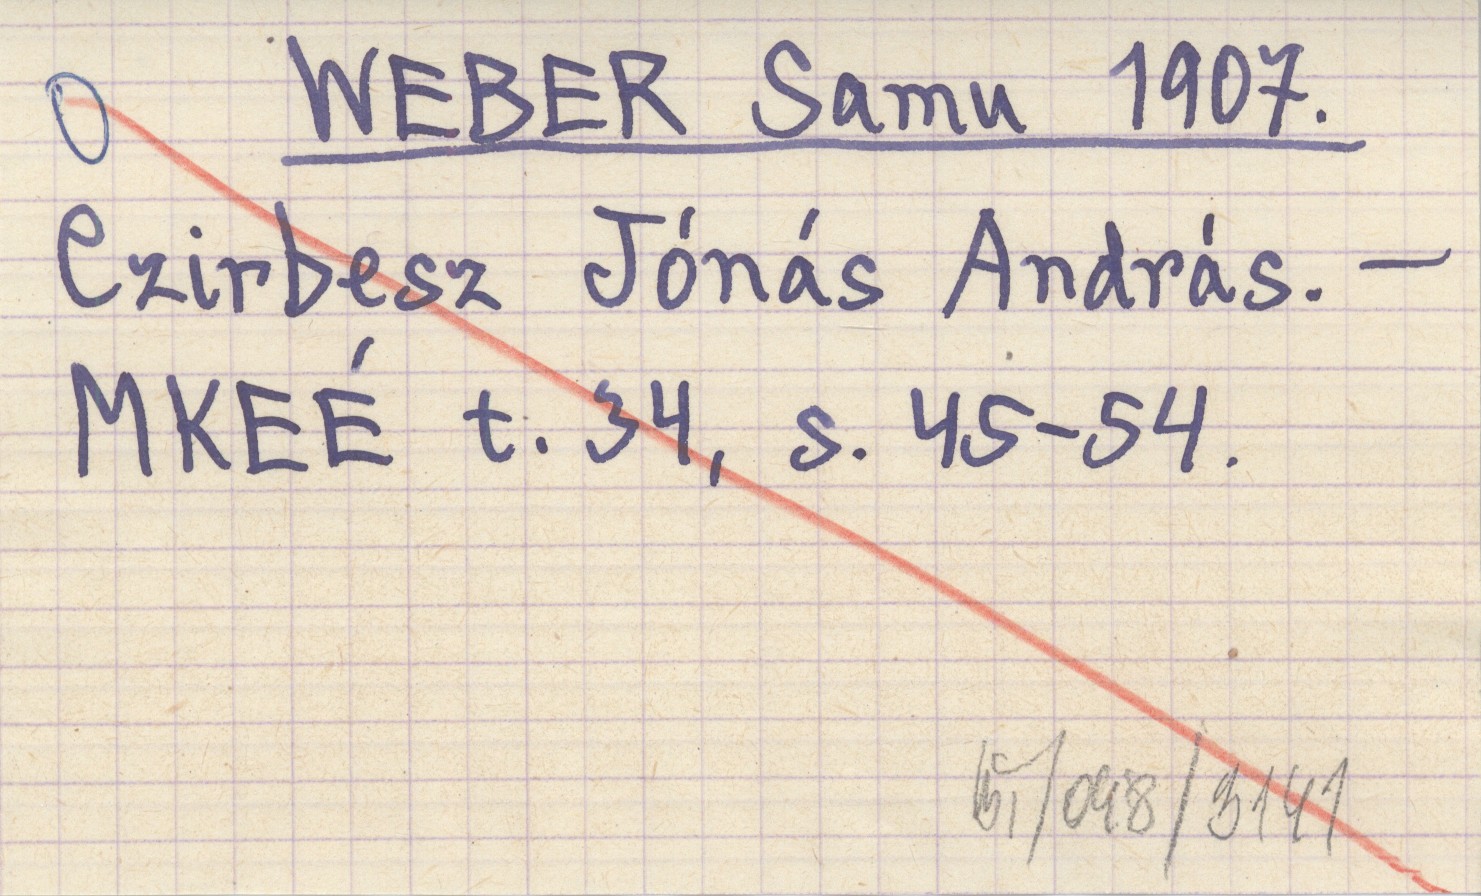 WEBER Samu 1907.
Czirbesz Jónás András. —
MKEÉ t. 34, s. 45-54.
/048/3141